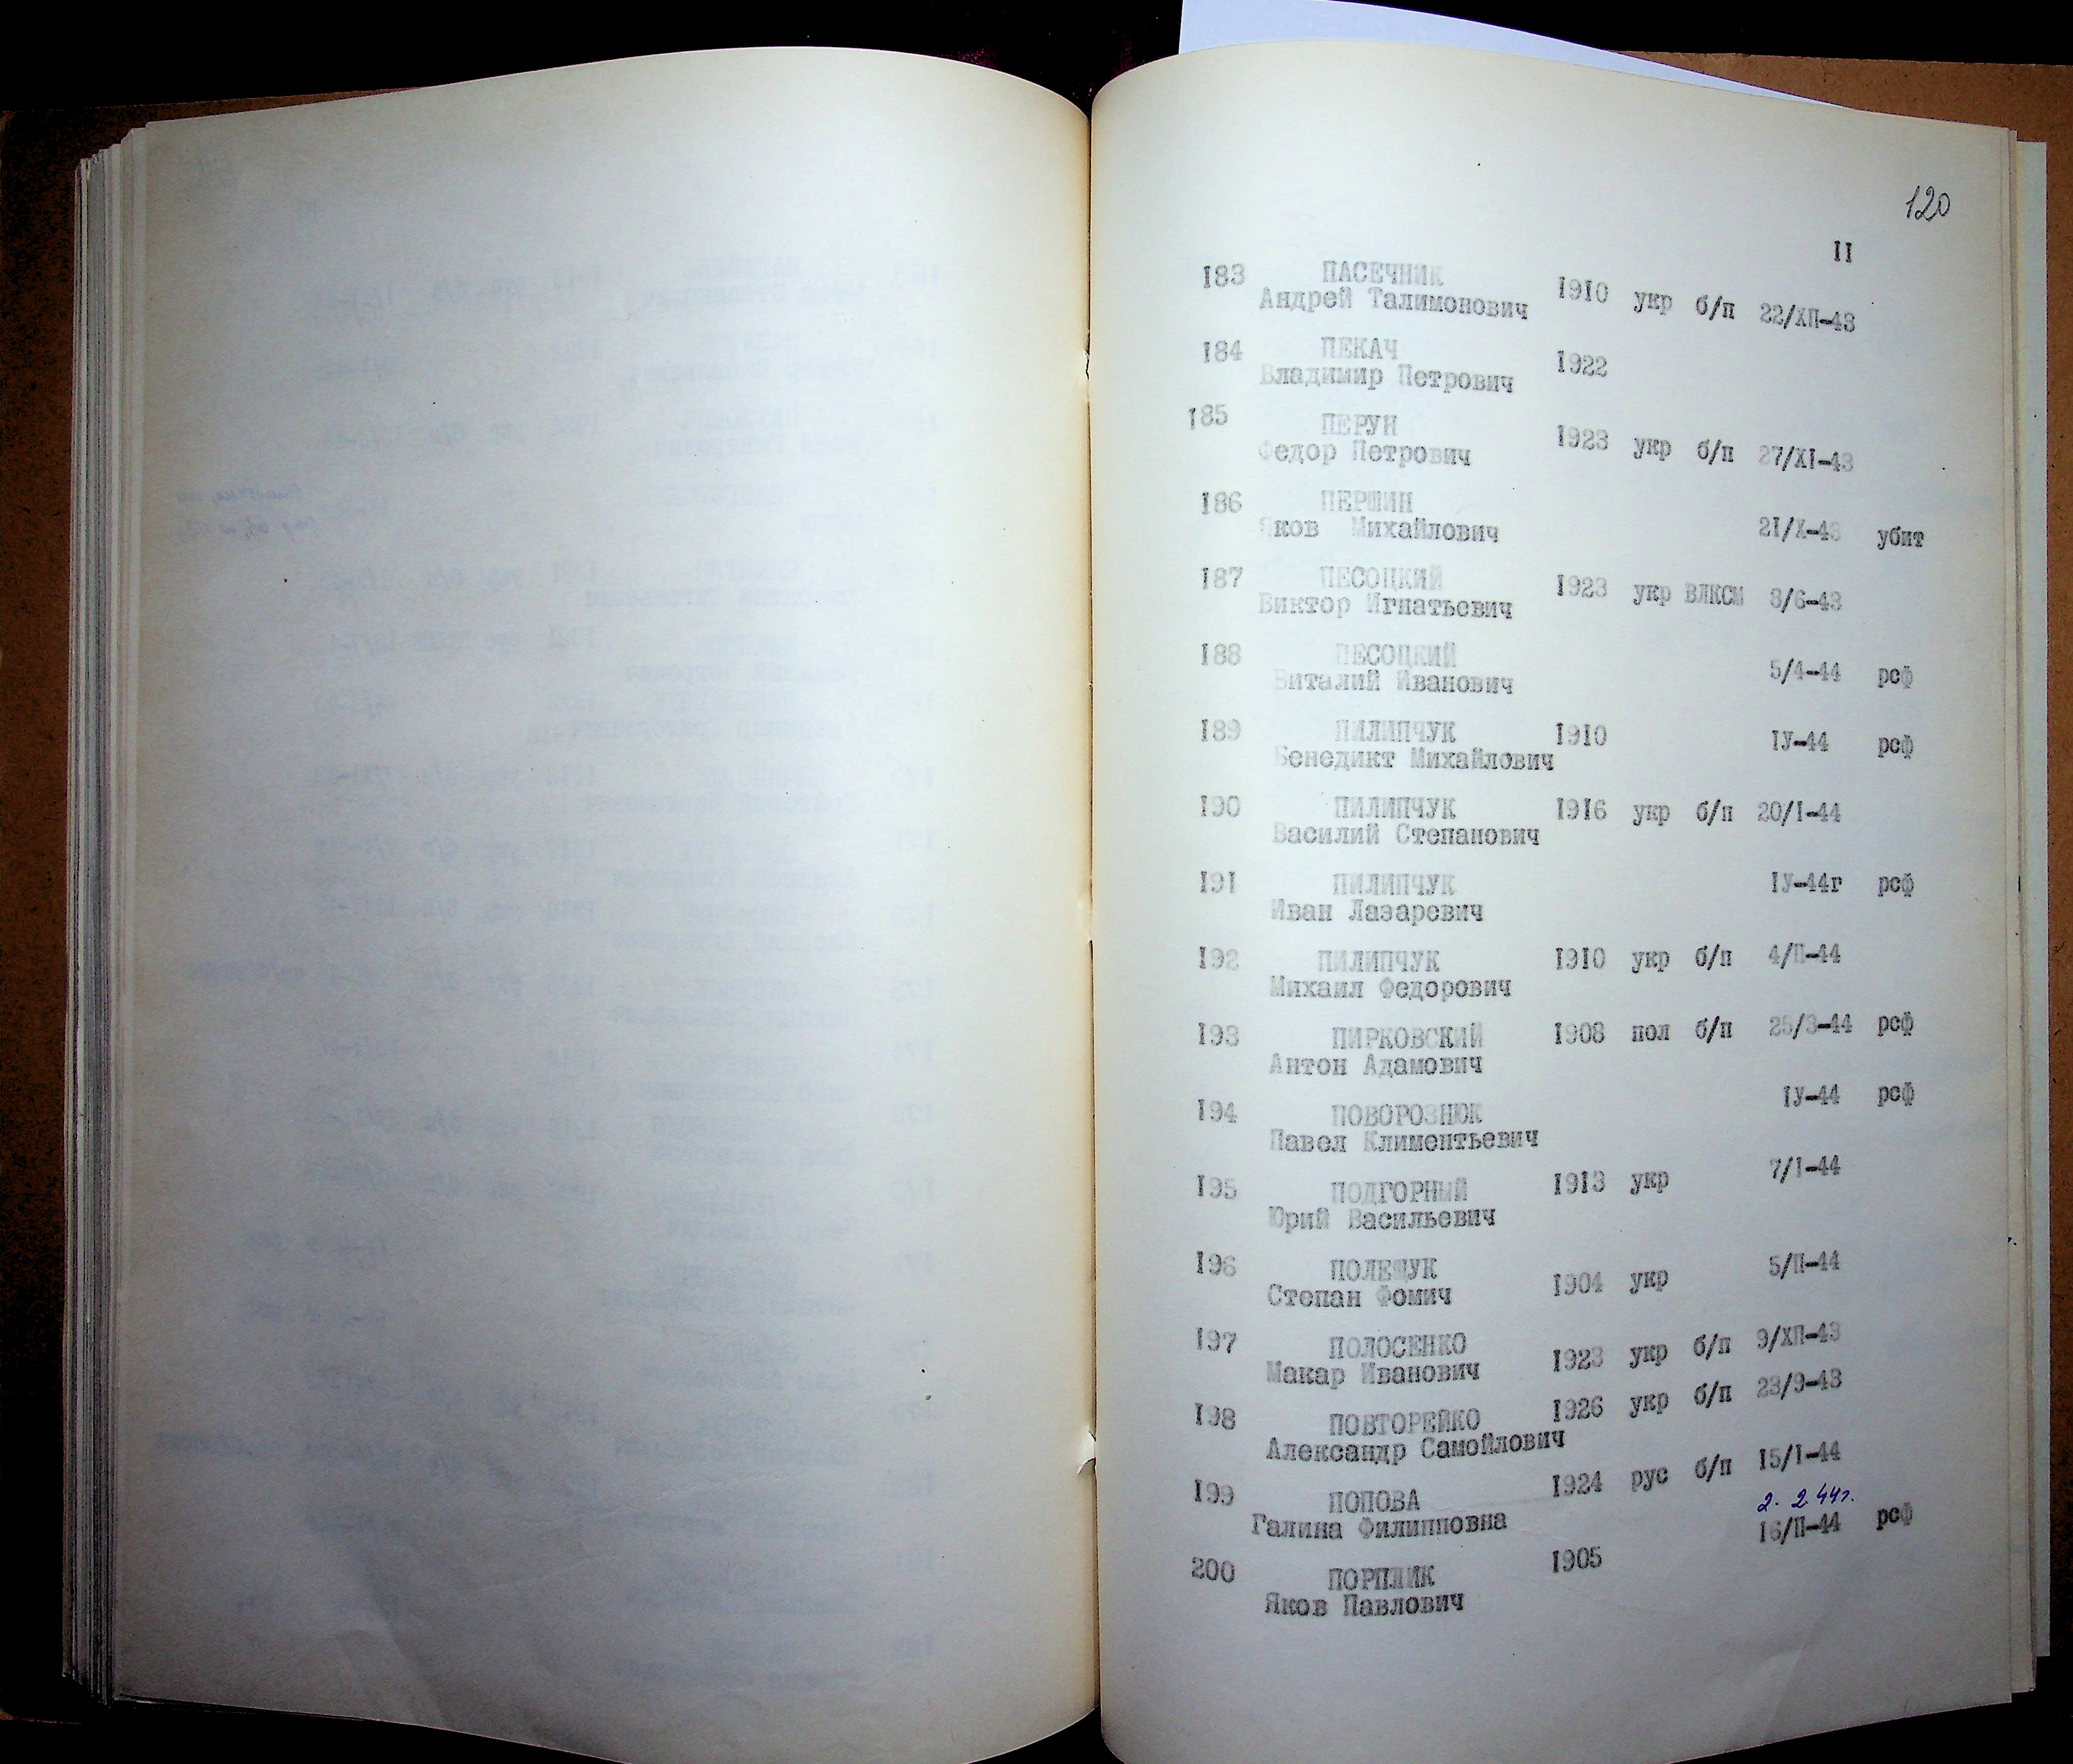 120
II
183 ПАСЕЧНИК 1910 укр б/п 22/ХП-43
Андрей Талимонович
184 ПЕКАЧ 1922
Владимир Петрович
185 ПЕРУН 1923 укр б/п 27/XI-43
Федор Петрович
186 ПЕРШИН
Яков Михайлович 21/Х-43 убит
187 ПЕСОЦКИЙ 1923 укр ВЛКСМ 8/6-43
Виктор Игнатьевич
188 ПЕСОЦКИЙ 5/4-44 рсф
Виталий Иванович
189 ПИЛИПЧУК 1910 IУ-44 рсф
Бенедикт Михайлович
190 ПИЛИПЧУК 1916 укр б/п 20/I-44
Василий Степанович
191 ПИЛИПЧУК IУ-44г рсф
Иван Лазаревич
192 ПИЛИПЧУК 1910 укр б/п 4/П-44
Михаил Федорович
193 ПИРКОВСКИЙ 1908 пол б/п 25/3-44 рсф
Антон Адамович
194 ПОВОРОЗНЮК IУ-44 рсф
Павел Климентьевич
195 ПОДГОРНЫЙ 1913 укр 7/I-44
Юрий Васильевич
196 ПОЛЕЩУК 1904 укр 5/П-44
Степан Фомич
197 ПОЛОСЕНКО 1923 укр б/п 9/ХП-43
Макар Иванович
198 ПОВТОРЕЙКО 1926 укр б/п 23/9-43
Александр Самойлович
199 ПОПОВА 1924 рус б/п 15/I-44
Галина Филипповна
2. 2 44г.
200 ПОРПЛИК 1905 16/П-44 рсф
Яков Павлович